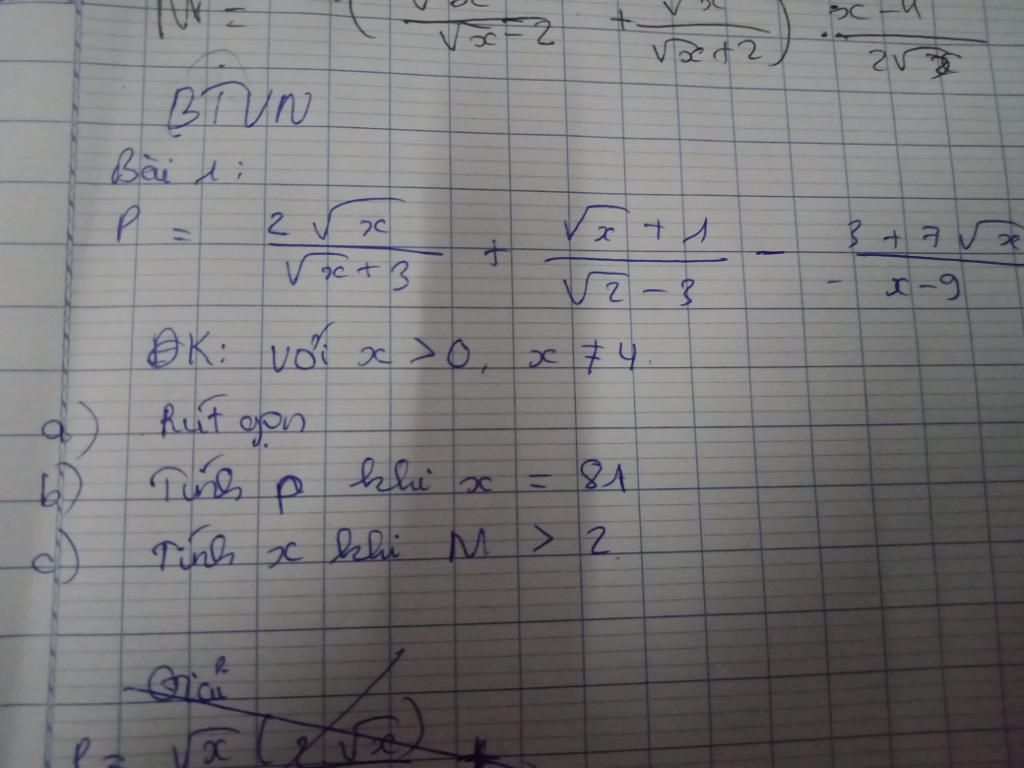 M = (√x/√x-2 + √x/√x+2) . x-4/2√x
BTVN
Bài 1:
P = 2√x/√x+3 + √x+1/√2-3 - 3+7√x/x-9
ĐK: với x > 0, x ≠ 4.
a) Rút gọn
b) Tính p khi x = 81
c) Tính x khi M > 2.
Giải
P = √x (2√x)